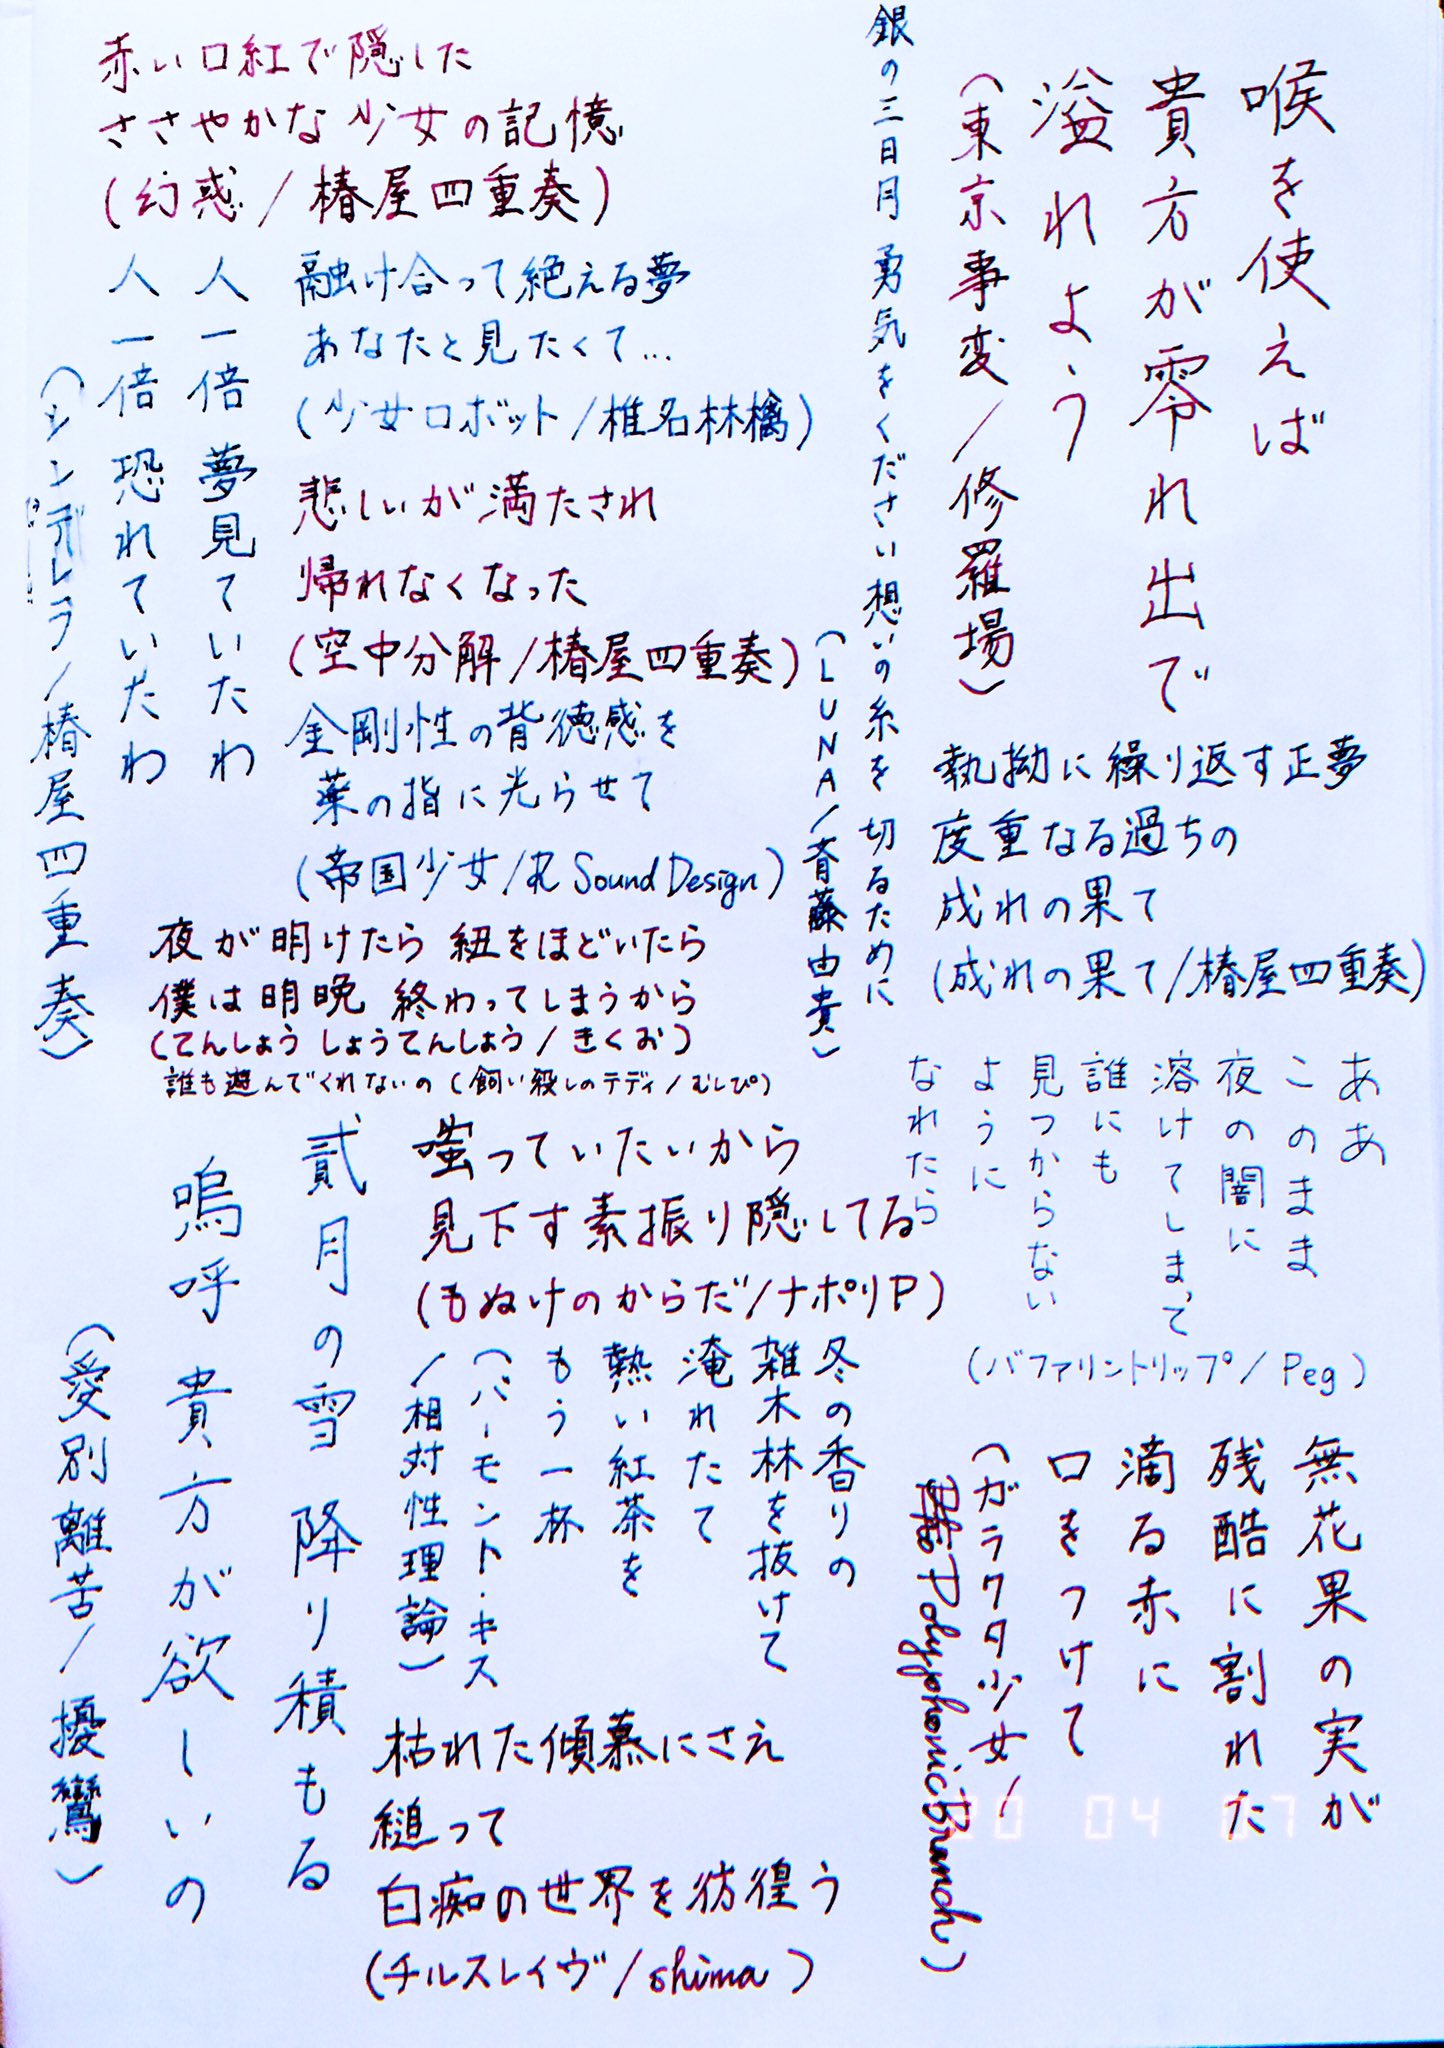 喉を使えば
貴方が零れ出で
溢れよう
(東京事変/修羅場)
銀の三日月 勇気をください 想いの糸を 切るために
(LUNA/斉藤由貴)
赤い口紅で隠した
ささやかな少女の記憶
(幻惑/椿屋四重奏)
融け合って絶える夢
あなたと見たくて…
(少女ロボット/椎名林檎)
人一倍 夢見ていたわ
人一倍 恐れていたわ
(シンデレラ/椿屋四重奏)
悲しいが満たされ
帰れなくなった
(空中分解/椿屋四重奏)
金剛性の背徳感を
薬の指に光らせて
(帝国少女/R Sound Design)
執拗に繰り返す正夢
度重なる過ちの
成れの果て
(成れの果て/椿屋四重奏)
夜が明けたら 紐をほどいたら
僕は明晩 終わってしまうから
(てんしょう しょうてんしょう/きくお)
誰も遊んでくれないの(飼い殺しのテディ/むしぴ)
ああ
このまま
夜の闇に
溶けてしまって
誰にも
見つからない
ように
なれたら
(バファリントリップ/Peg)
嗤っていたいから
見下す素振り隠してる
(もぬけのからだ/ナポリP)
貳月の雪 降り積もる
嗚呼 貴方が欲しいの
(愛別離苦/擾鸞)
冬の香りの
雑木林を抜けて
淹れたて
熱い紅茶を
もう一杯
(バーモント・キス
/相対性理論)
無花果の実が
残酷に割れた
滴る赤に
口をつけて
(ガラクタ少女/
Polyphonic Branch)
枯れた傾慕にさえ
縋って
白痴の世界を彷徨う
(チルスレイヴ/shima)
20 04 07